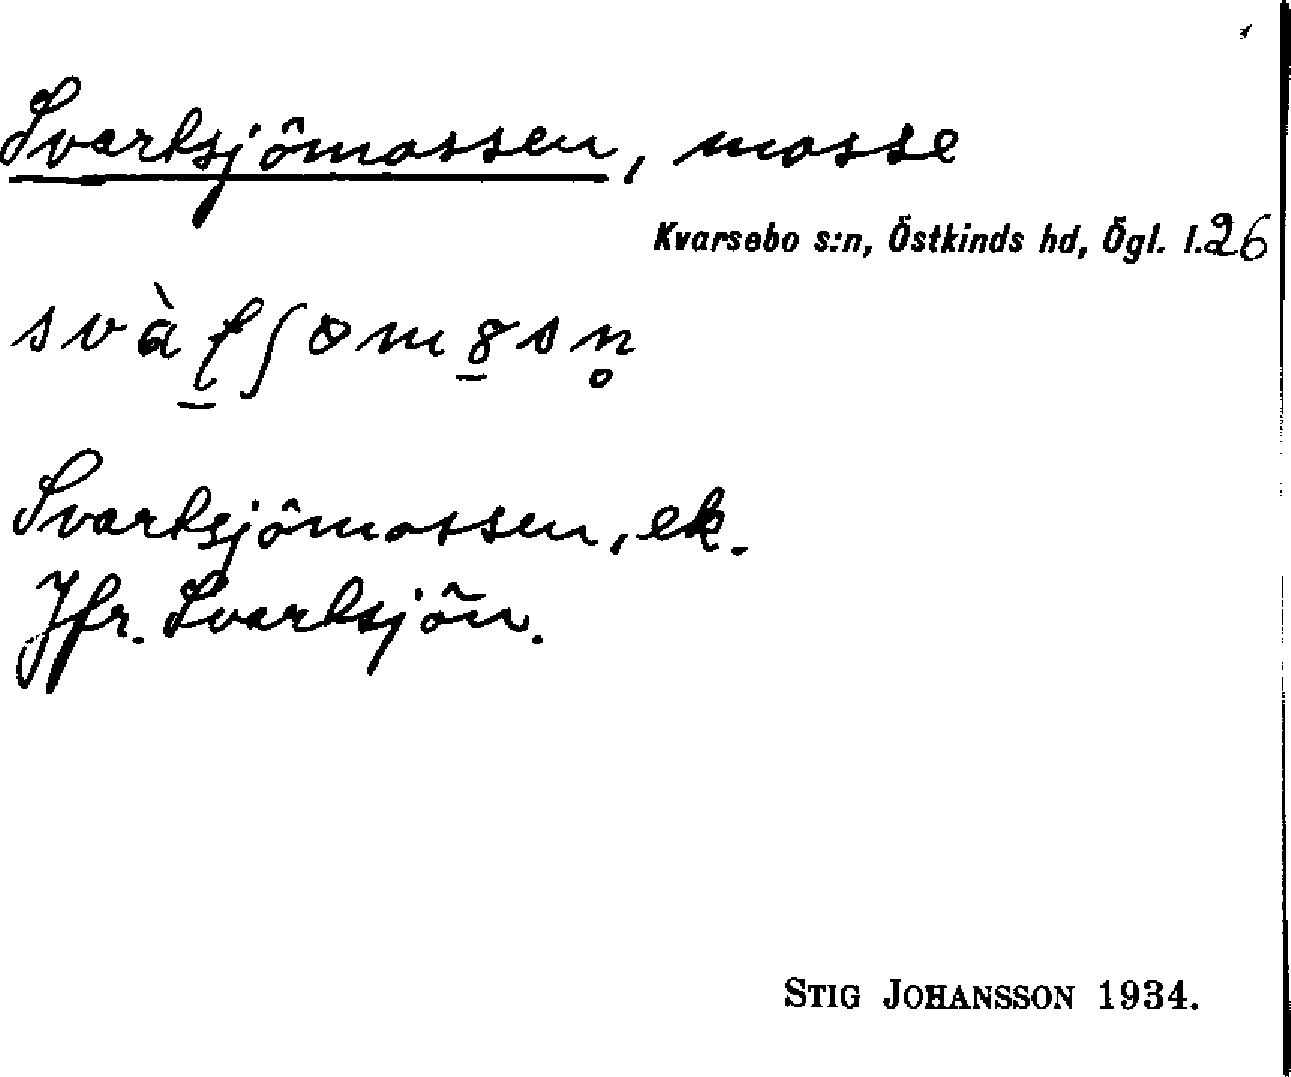 Svartsjömossen, mosse
Kvarsebo s:n, Östkinds hd, Ögl. l. 26
Svartsjömossen, ek.
Jfr. Svartsjön.
STIG JOHANSSON 1934.